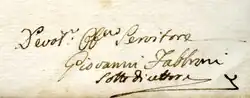 Devot.mo Obb.mo Servitore
Giovanni Fabbroni
Sotto direttore